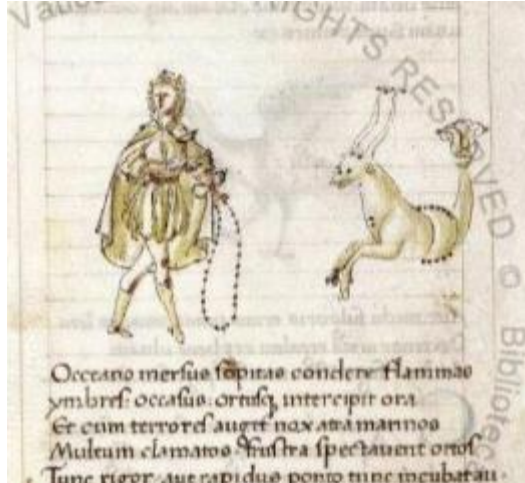 IGHTS RESERVED © Bibliotec
Occeano mersus sopitas condere flammas
ymbres. occasus. ortusq, intercipit ora
Et cum terrores augit nox atra marinos
Multum clamatos. frustra spectauent ortos
Tunc rigor. aut rapidus ponto tunc incubat au